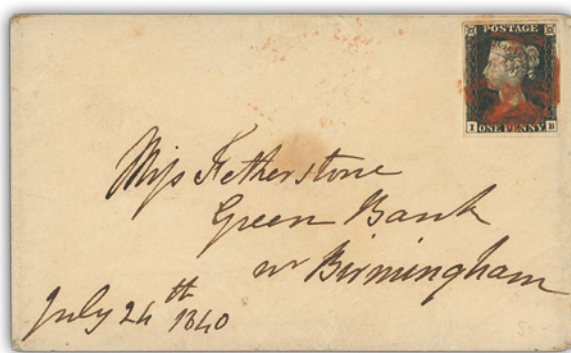 POSTAGE
I ONE PENNY B
Miss Fetherstone
Green Bank
nr Birmingham
July 24th 1840